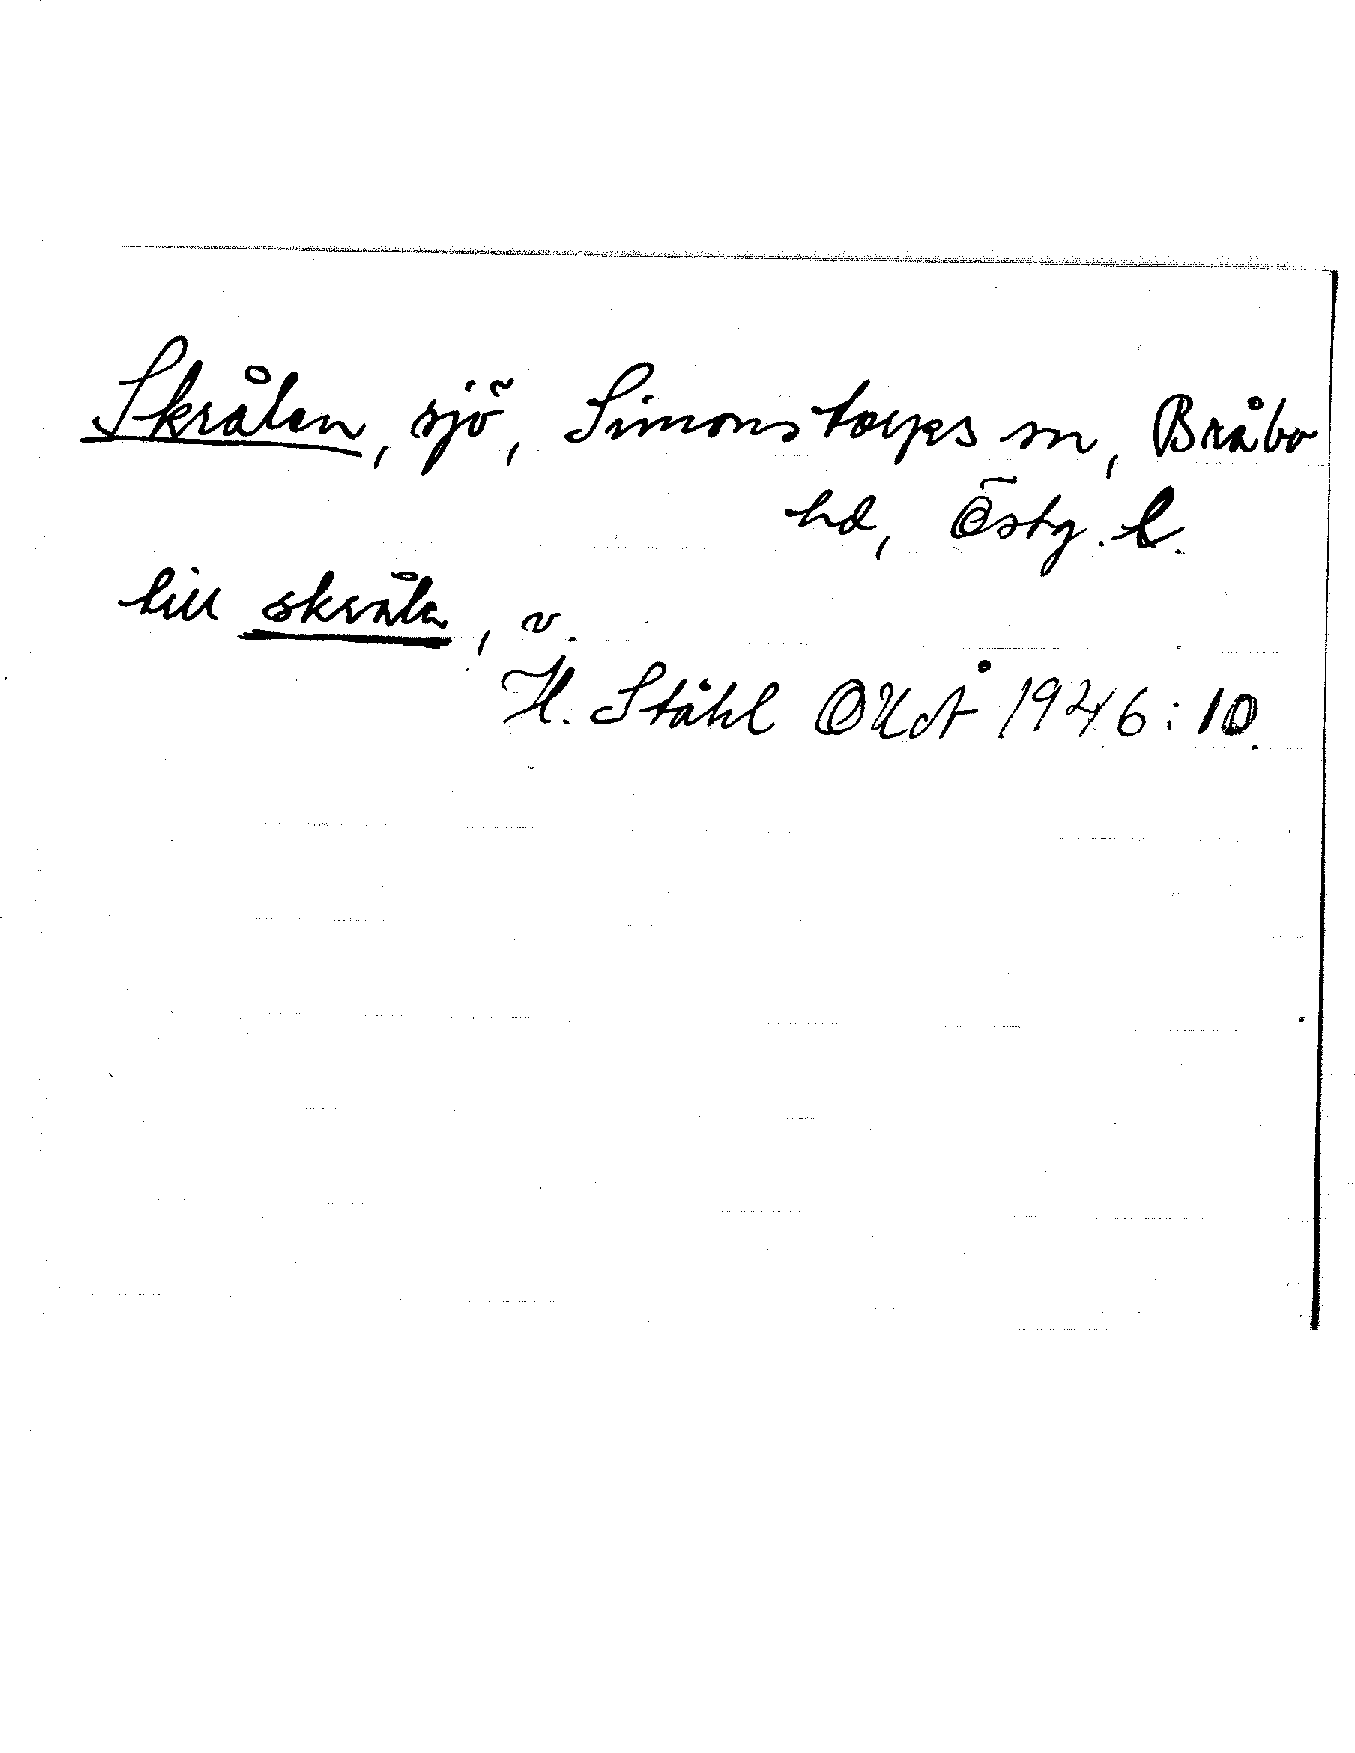 Skrålen, sjö, Simonstorps sn, Bråbo
hd, Östg. l.
till skråla, v.
H. Ståhl OUÅ 1946:10.